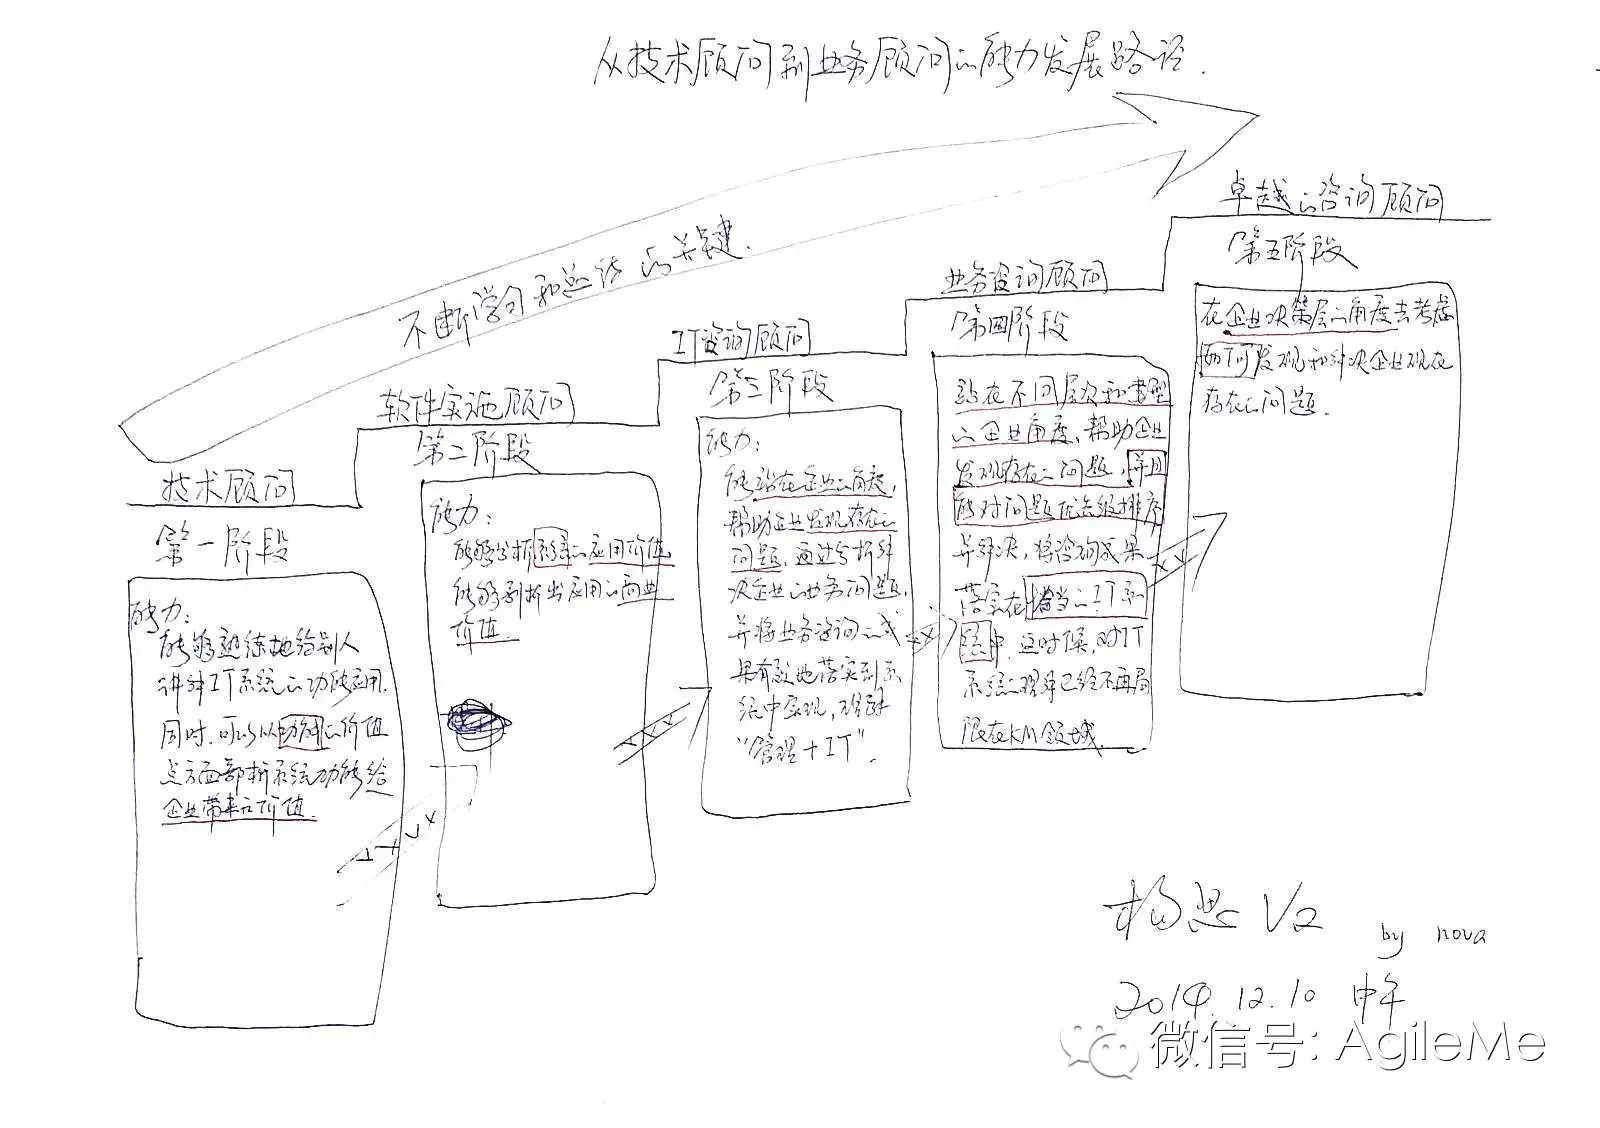 从技术顾问到业务顾问的能力发展路径.
不断学习和总结的关键.
技术顾问
第一阶段
能力:
能够熟练地给别人
讲解IT系统的功能应用.
同时.可以从功能的价值
点方面剖析系统功能给
企业带来的价值.
软件实施顾问
第二阶段
能力:
能够分析系统的应用价值
能够剖析出应用的商业
价值.
IT咨询顾问
第三阶段
能力:
能站在企业的角度,
帮助企业发现存在的
问题,通过分析解
决企业的业务问题,
并将业务咨询的成
果有效地落实到系
统中实现,理解
"管理+IT".
业务咨询顾问
第四阶段
站在不同层次和类型
的企业角度,帮助企业
发现存在的问题,并且
能对问题优先级排序
并解决,将咨询成果
落实在恰当的IT系
统中.这时候,对IT
系统的理解已经不再局
限在KM领域.
卓越的咨询顾问
第五阶段
在企业决策层的角度去考虑
如何发现和解决企业现在
存在的问题.
杨思 V2 by nova
2014.12.10 中午
微信号: AgileMe